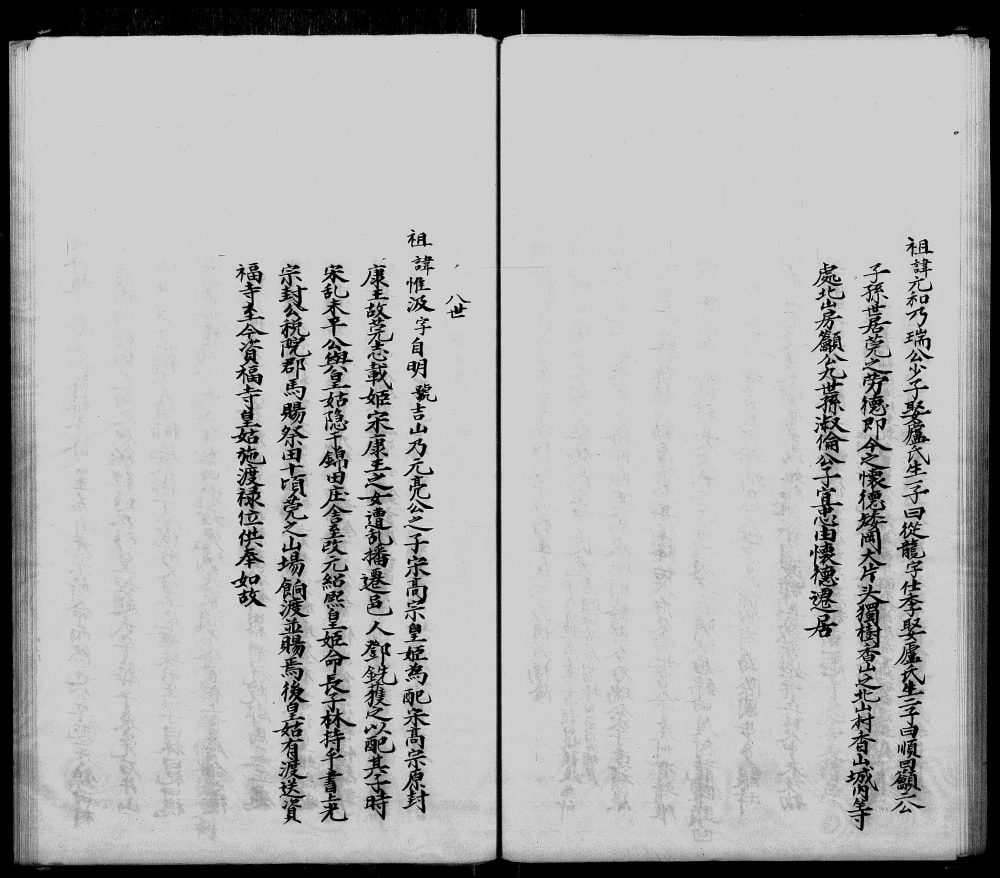 祖諱元和乃瑞公少子娶盧氏生一子曰從龍字仕李娶盧氏生二子曰順曰籲二公
子孫世居莞之旁德即今之懷德𡍼岡大片头獨樹香山之北山村香山城內等
處北山房籲公九世孫淑倫公子宜志由懷德遷居
八世
祖諱惟汲字自明號吉山乃元亮公之子宋高宗皇姬為配宋高宗原封
康王故莞志載姬宋康王之女遭乱播遷邑人鄧銑獲之以配其子時
宋乱未平公與皇姑隐于錦田庄舍至改元紹熙皇姬命長子林持手書上光
宗封公稅院郡馬賜祭田十頃莞之山場餉渡並賜焉後皇姑有渡送資
福寺至今資福寺皇姑施渡祿位供奉如故